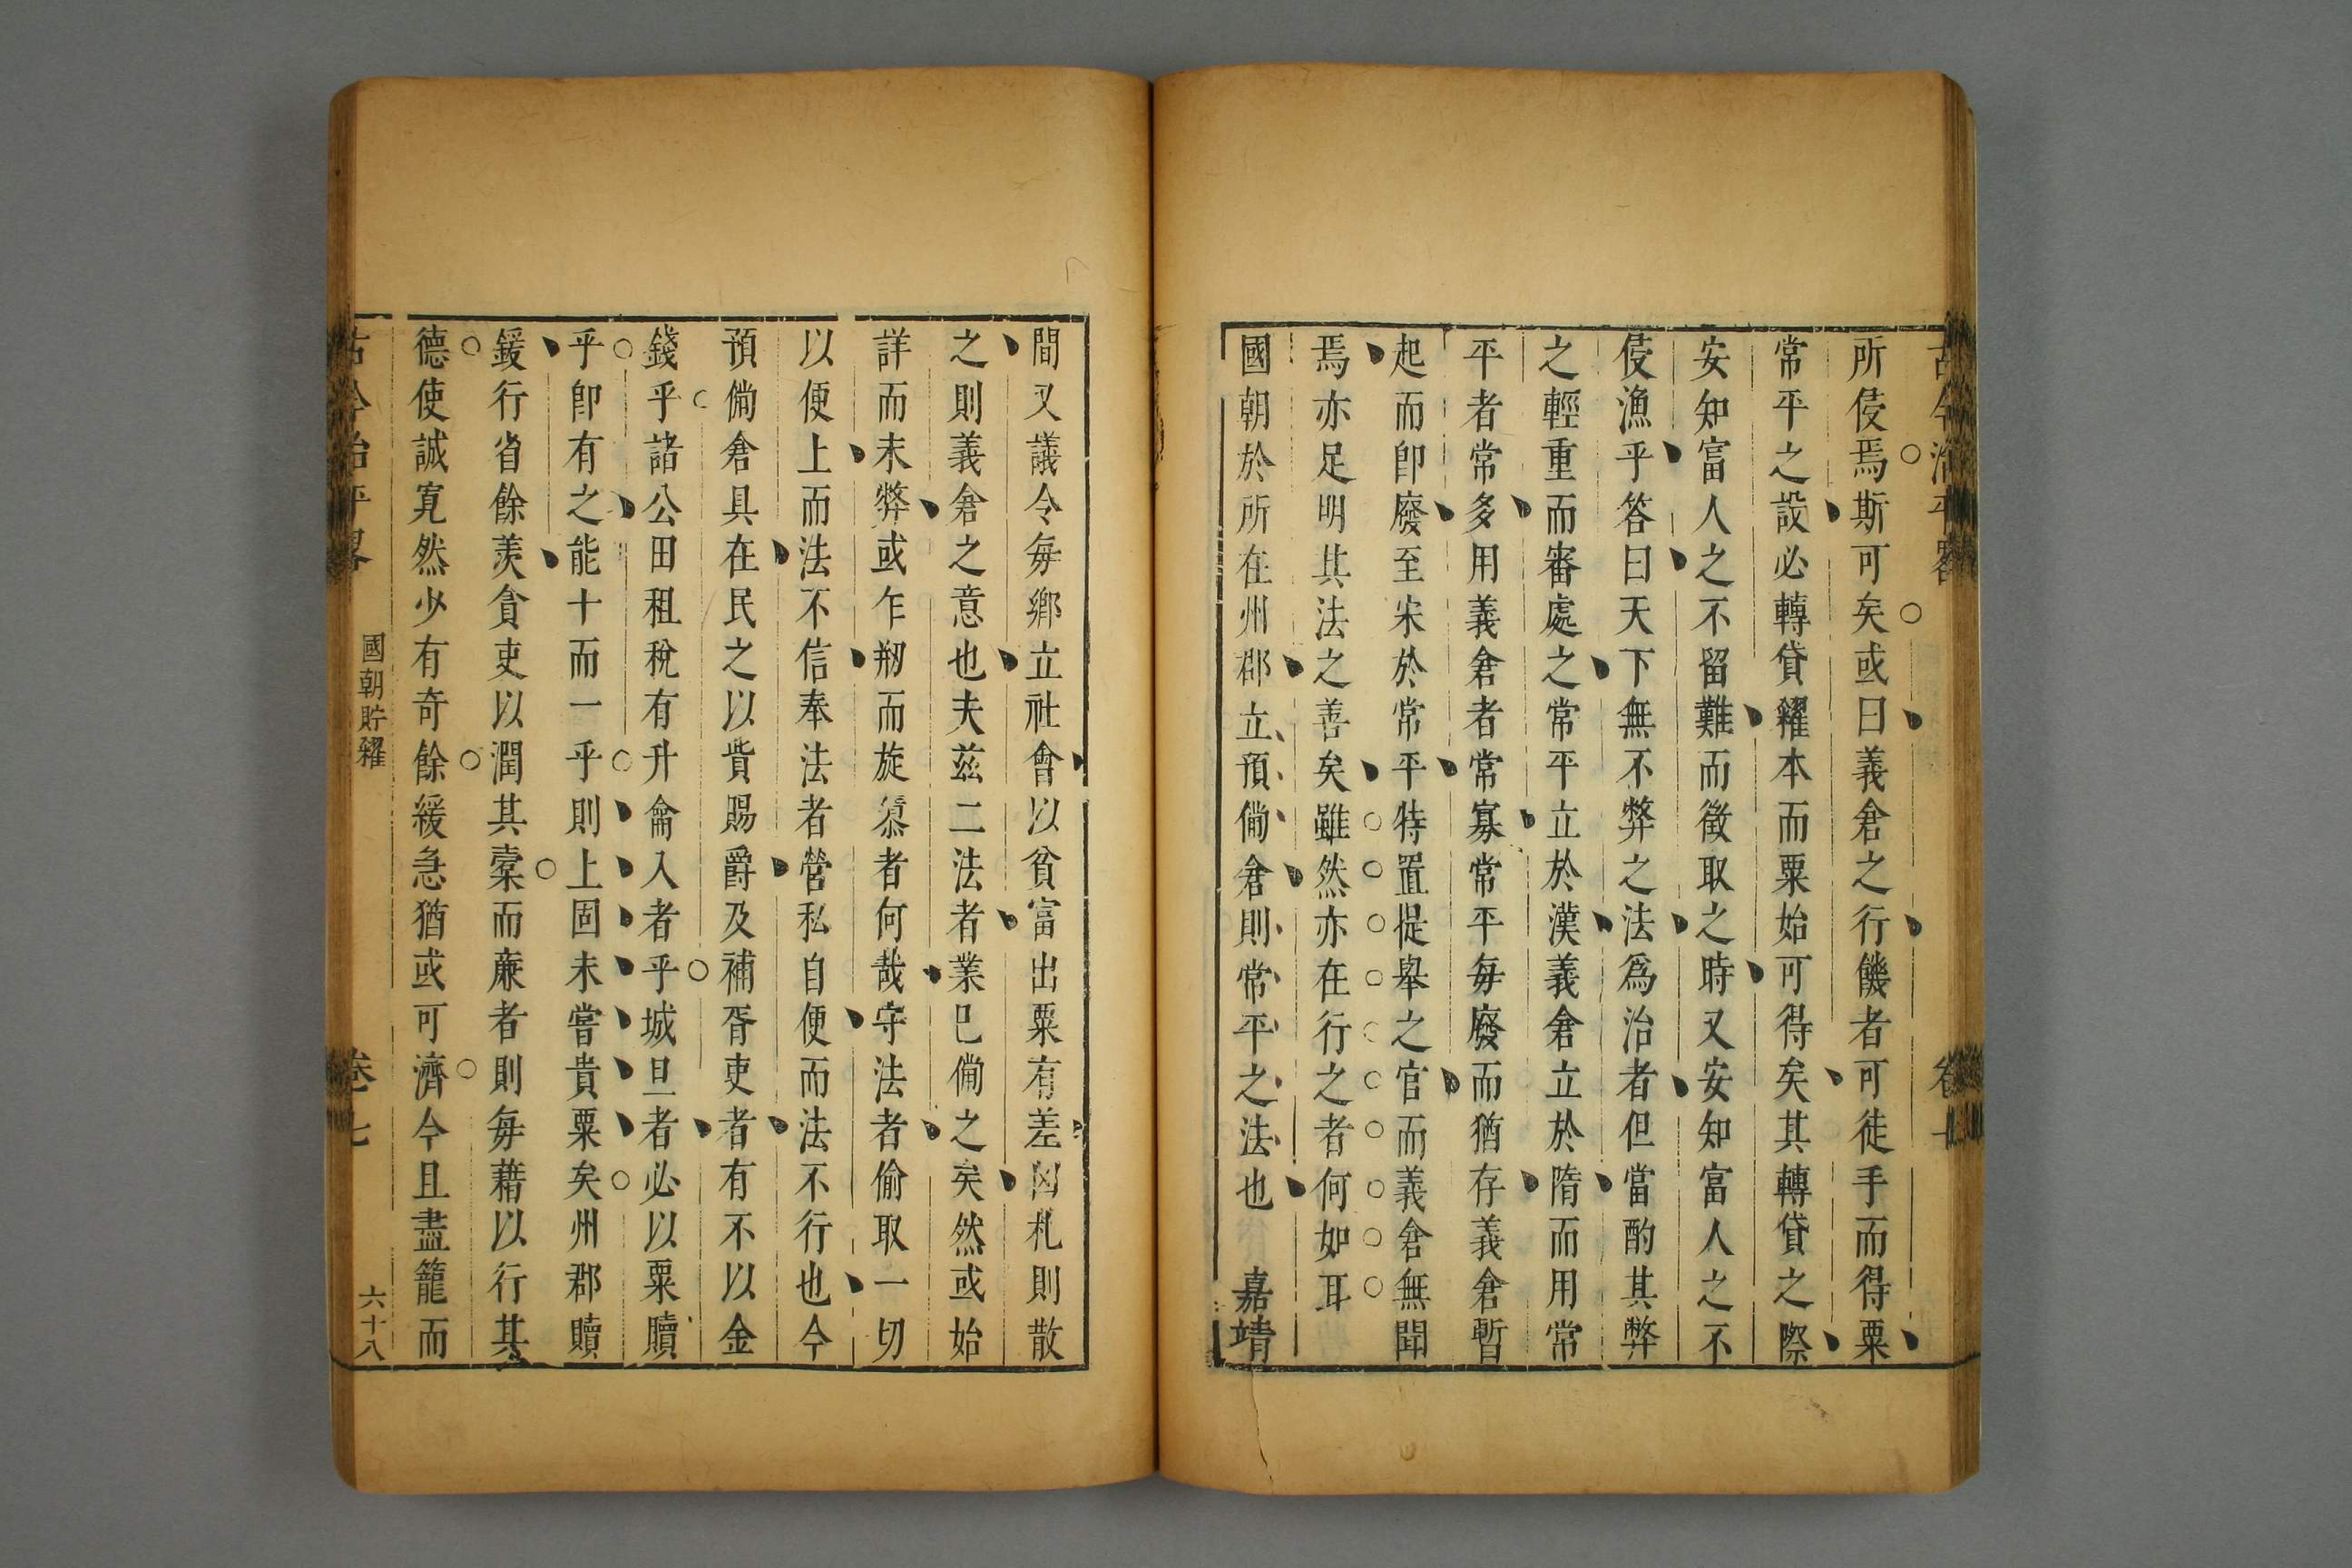 所侵焉斯可矣或曰義倉之行饑者可徒手而得粟
常平之設必轉貸糴本而粟始可得矣其轉貸之際
安知富人之不留難而徵取之時又安知富人之不
侵漁乎答曰天下無不弊之法爲治者但當酌其弊
之輕重而審處之常平立於漢義倉立於隋而用常
平者常多用義倉者常寡常平每廢而猶存義倉暫
起而卽廢至宋於常平特置提舉之官而義倉無聞
焉亦足明其法之善矣雖然亦在行之者何如耳
國朝於所在州郡立預備倉則常平之法也嘉靖
間又議令每鄉立社會以貧富出粟有差凶札則散
之則義倉之意也夫兹二法者業已備之矣然或始
詳而末弊或乍剏而旋隳者何哉守法者偷取一切
以便上而法不信奉法者營私自便而法不行也今
預備倉具在民之以貲賜爵及補胥吏者有不以金
錢乎諸公田租稅有升龠入者乎城旦者必以粟贖
乎卽有之能十而一乎則上固未嘗貴粟矣州郡贖
鍰行省餘羨貪吏以潤其橐而廉者則每藉以行其
德使誠寬然少有奇餘緩急猶或可濟今且盡籠而
古今治平畧
國朝貯糴
卷七
六十八